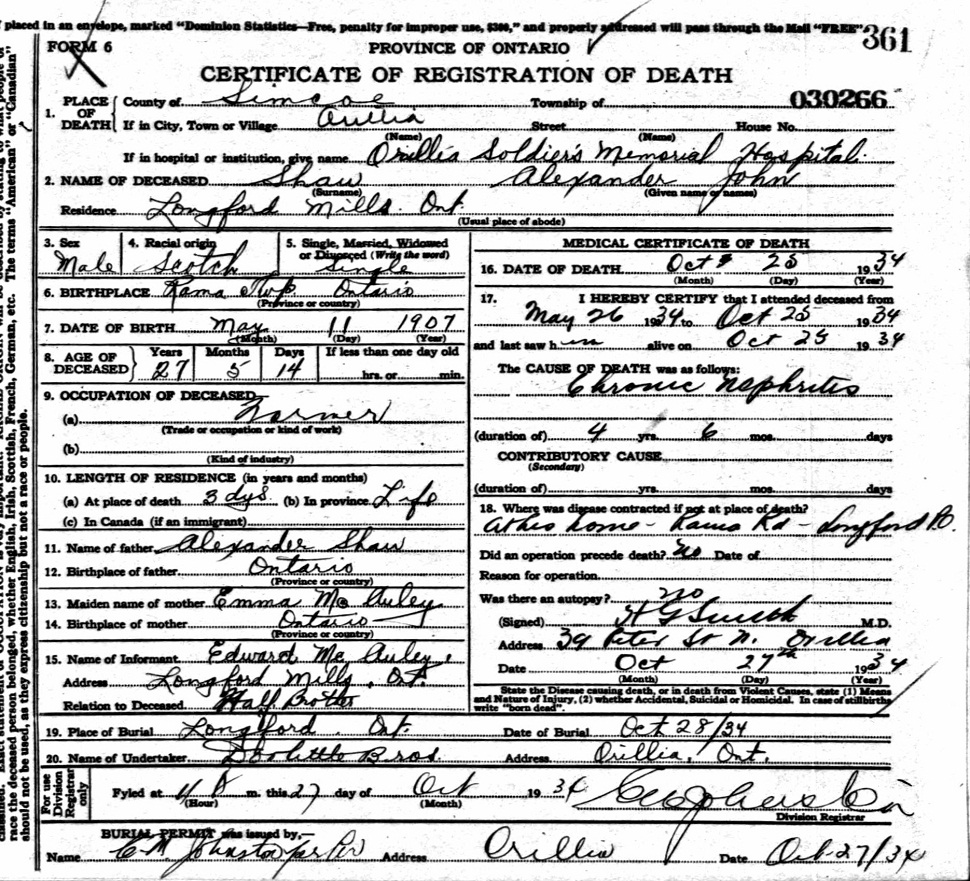 placed in an envelope, marked "Dominion Statistics—Free, penalty for improper use, $300," and properly addressed will pass through the Mail "FREE".
361
FORM 6
PROVINCE OF ONTARIO
CERTIFICATE OF REGISTRATION OF DEATH
030266
1. PLACE OF DEATH { County of Simcoe Township of
If in City, Town or Village Orillia Street House No.
(Name) (Name)
If in hospital or institution, give name Orillia Soldiers Memorial Hospital.
2. NAME OF DECEASED Shaw Alexander John
(Surname) (Given name or names)
Residence Longford Mills. Ont.
(Usual place of abode)
3. Sex Male
4. Racial origin Scotch
5. Single, Married, Widowed or Divorced (Write the word) Single
6. BIRTHPLACE Rama Twp Ontario
(Province or country)
7. DATE OF BIRTH May 11 1907
(Month) (Day) (Year)
8. AGE OF DECEASED } Years Months Days If less than one day old
27 5 14 hrs. or min.
9. OCCUPATION OF DECEASED
(a) Farmer
(Trade or occupation or kind of work)
(b)
(Kind of industry)
10. LENGTH OF RESIDENCE (in years and months)
(a) At place of death 3 dys. (b) In province Life
(c) In Canada (if an immigrant)
11. Name of father Alexander Shaw
12. Birthplace of father Ontario
(Province or country)
13. Maiden name of mother Emma Mc Auley
14. Birthplace of mother Ontario
(Province or country)
15. Name of Informant Edward Mc Auley
Address Longford Mills, Ont.
Relation to Deceased Half Brother
MEDICAL CERTIFICATE OF DEATH
16. DATE OF DEATH Oct 25 1934
(Month) (Day) (Year)
17. I HEREBY CERTIFY that I attended deceased from
May 26 1934 to Oct 25 1934
and last saw him alive on Oct 25 1934
The CAUSE OF DEATH was as follows:
Chronic Nephritis
(duration of) 4 yrs. 6 mos. days
CONTRIBUTORY CAUSE
(Secondary)
(duration of) yrs. mos. days
18. Where was disease contracted if not at place of death?
at his home - Rama Rd - Longford
Did an operation precede death? No Date of
Reason for operation
Was there an autopsy? no
(Signed) H G M.D.
Address 39 Peter St N. Orillia
Date Oct 27th 1934
(Month) (Day) (Year)
State the Disease causing death, or in death from Violent Causes, state (1) Means
and Nature of Injury, (2) whether Accidental, Suicidal or Homicidal. In case of stillbirths
write "born dead".
19. Place of Burial Longford Ont. Date of Burial Oct 28/34
20. Name of Undertaker Doolittle Bros. Address Orillia, Ont.
For use of Division Registrar only
Fyled at 4 m. this 27 day of Oct 1934
(Hour) (Month)
Division Registrar
BURIAL PERMIT was issued by,—
Name C. M. Johnston Address Orillia Date Oct-27/34
race the deceased person belonged, whether English, Irish, Scottish, French, German, etc. The terms "American" or "Canadian"
should not be used, as they express citizenship but not a race or people.